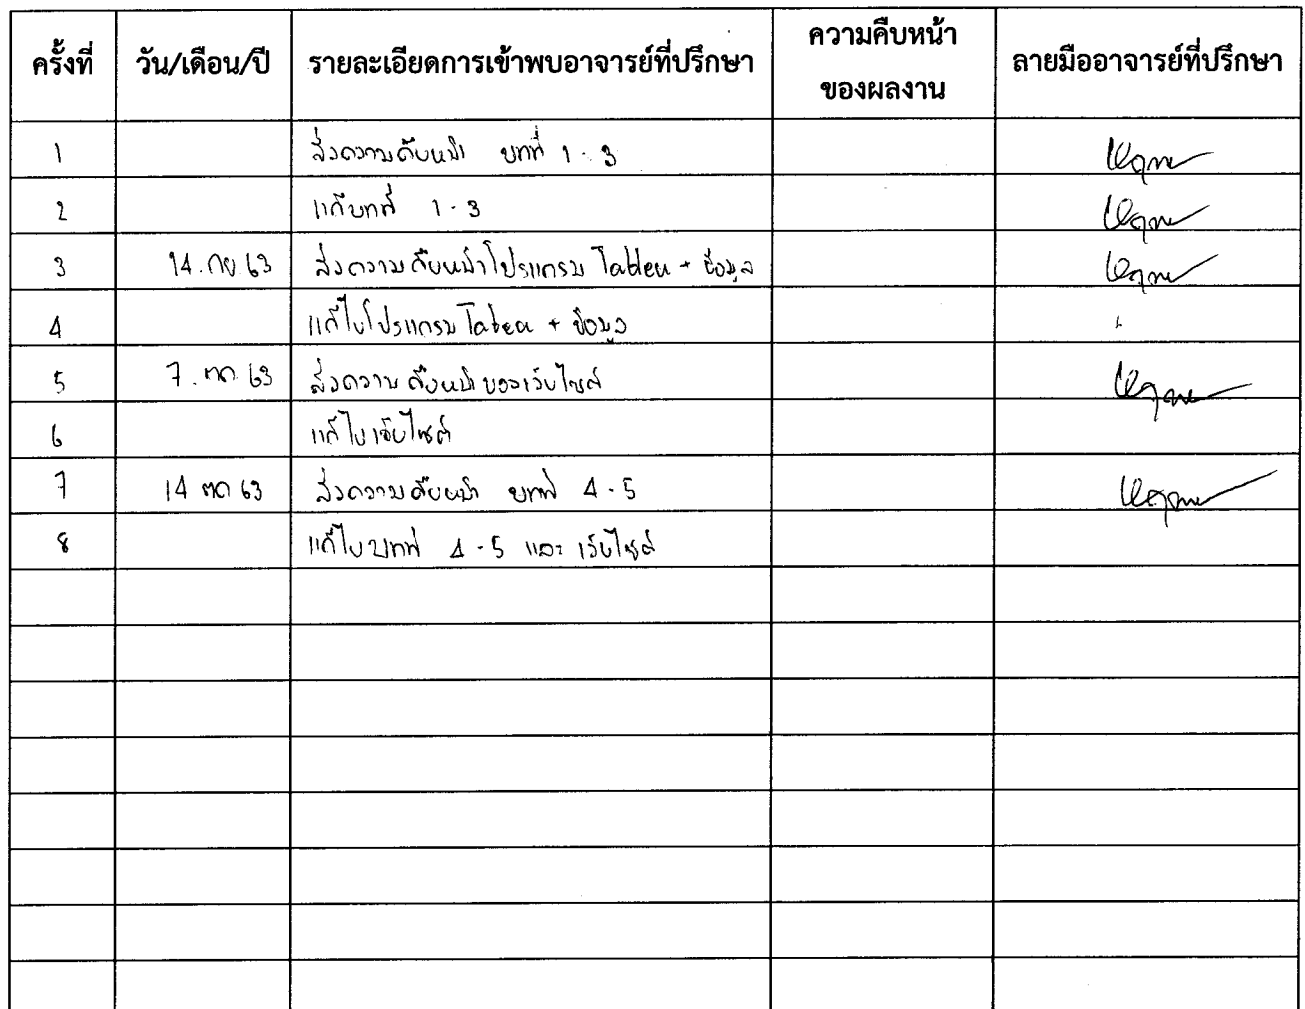 ครั้งที่ วัน/เดือน/ปี รายละเอียดการเข้าพบอาจารย์ที่ปรึกษา ความคืบหน้า ของผลงาน ลายมืออาจารย์ที่ปรึกษา
1 ส่งความคืบหน้า บทที่ 1 - 3
2 แก้บทที่ 1 - 3
3 14 . กย 63 ส่งความคืบหน้าโปรแกรม Tableu + ข้อมูล
4 แก้ไขโปรแกรม Tabeu + ข้อมูล
5 7 . ตค 63 ส่งความคืบหน้าของเว็บไซต์
6 แก้ไขเว็บไซต์
7 14 ตค 63 ส่งความคืบหน้า บทที่ 4 - 5
8 แก้ไขบทที่ 4 - 5 และ เว็บไซต์